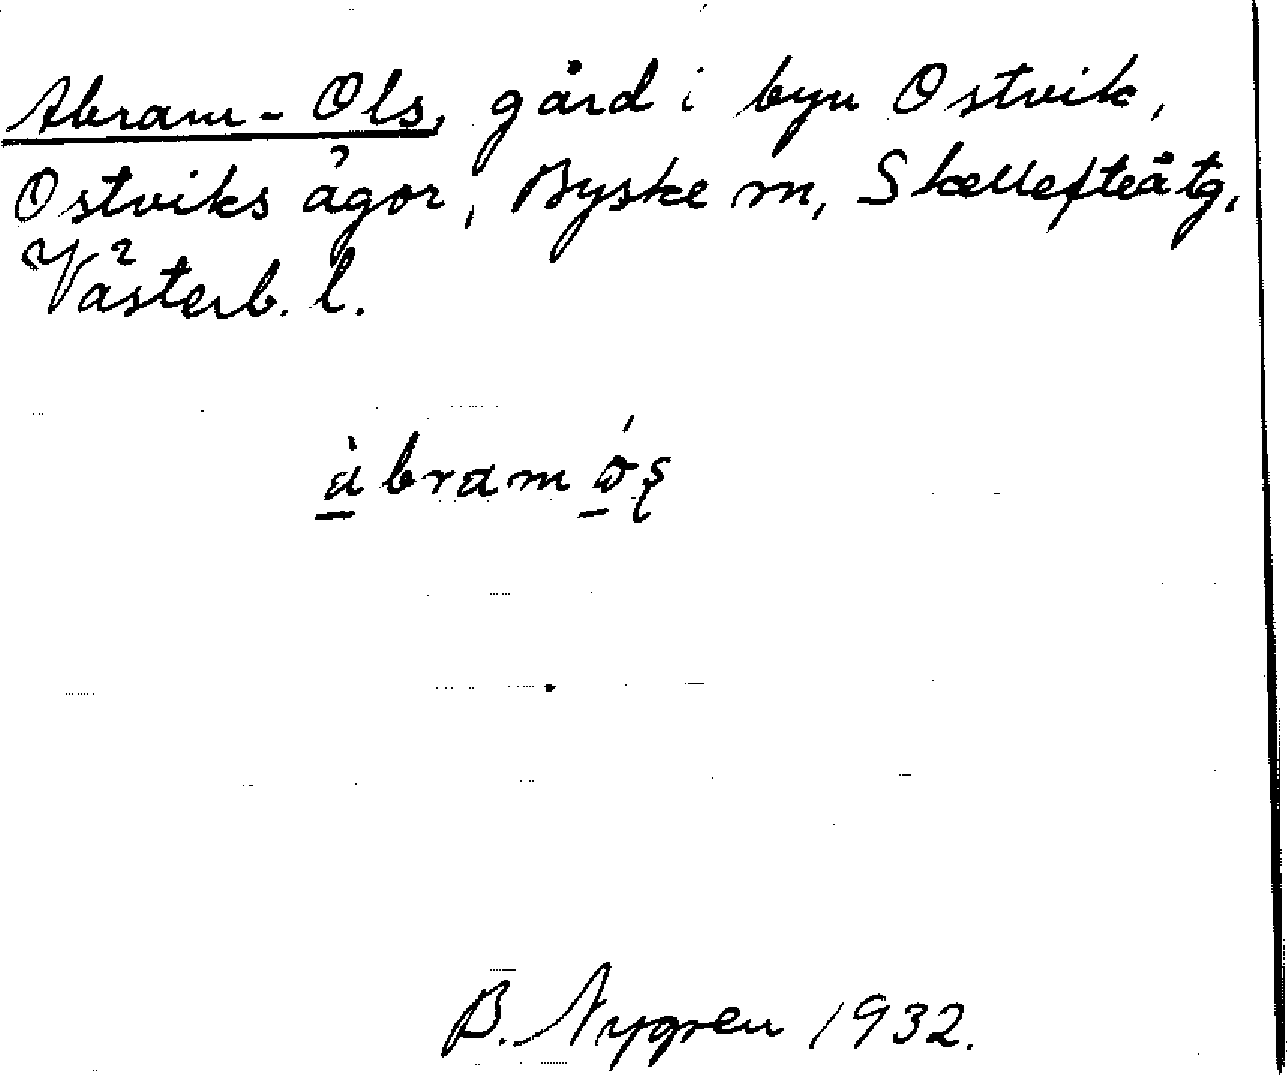 Abram-Ols, gård i byn Ostvik,
Ostviks ägor, Byske sn, Skellefteå tg,
Västerb. l.
àbram ó̱ş
B. Nygren 1932.